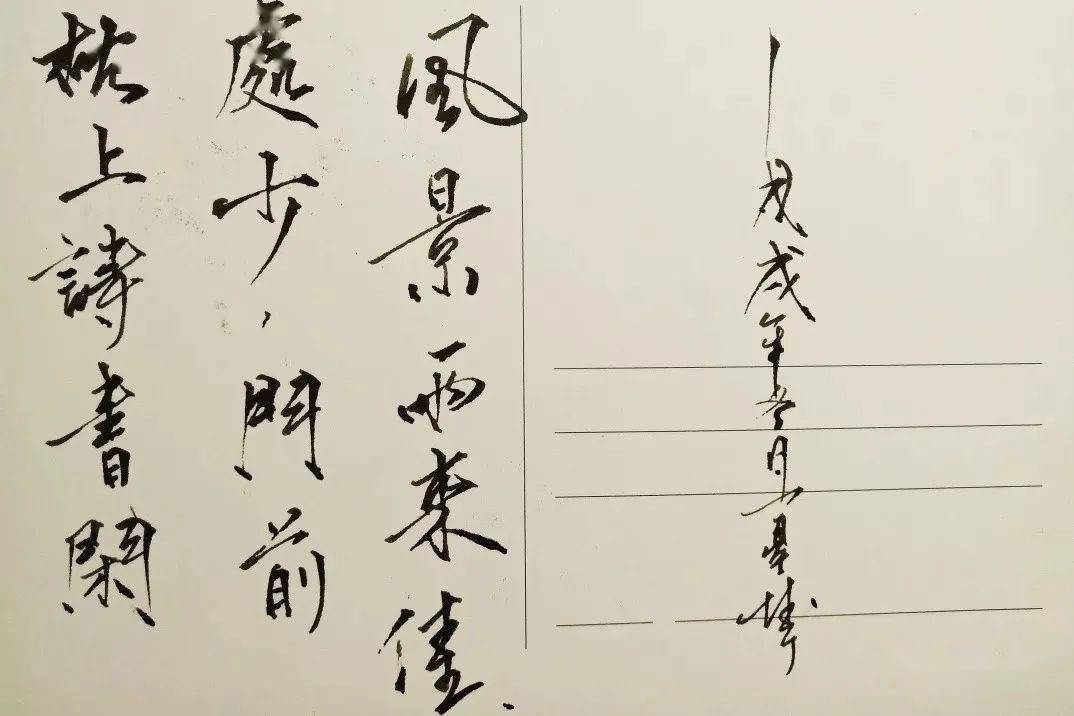 枕上詩書閑
處少，門前
風景雨來佳.
戊戌年冬月上